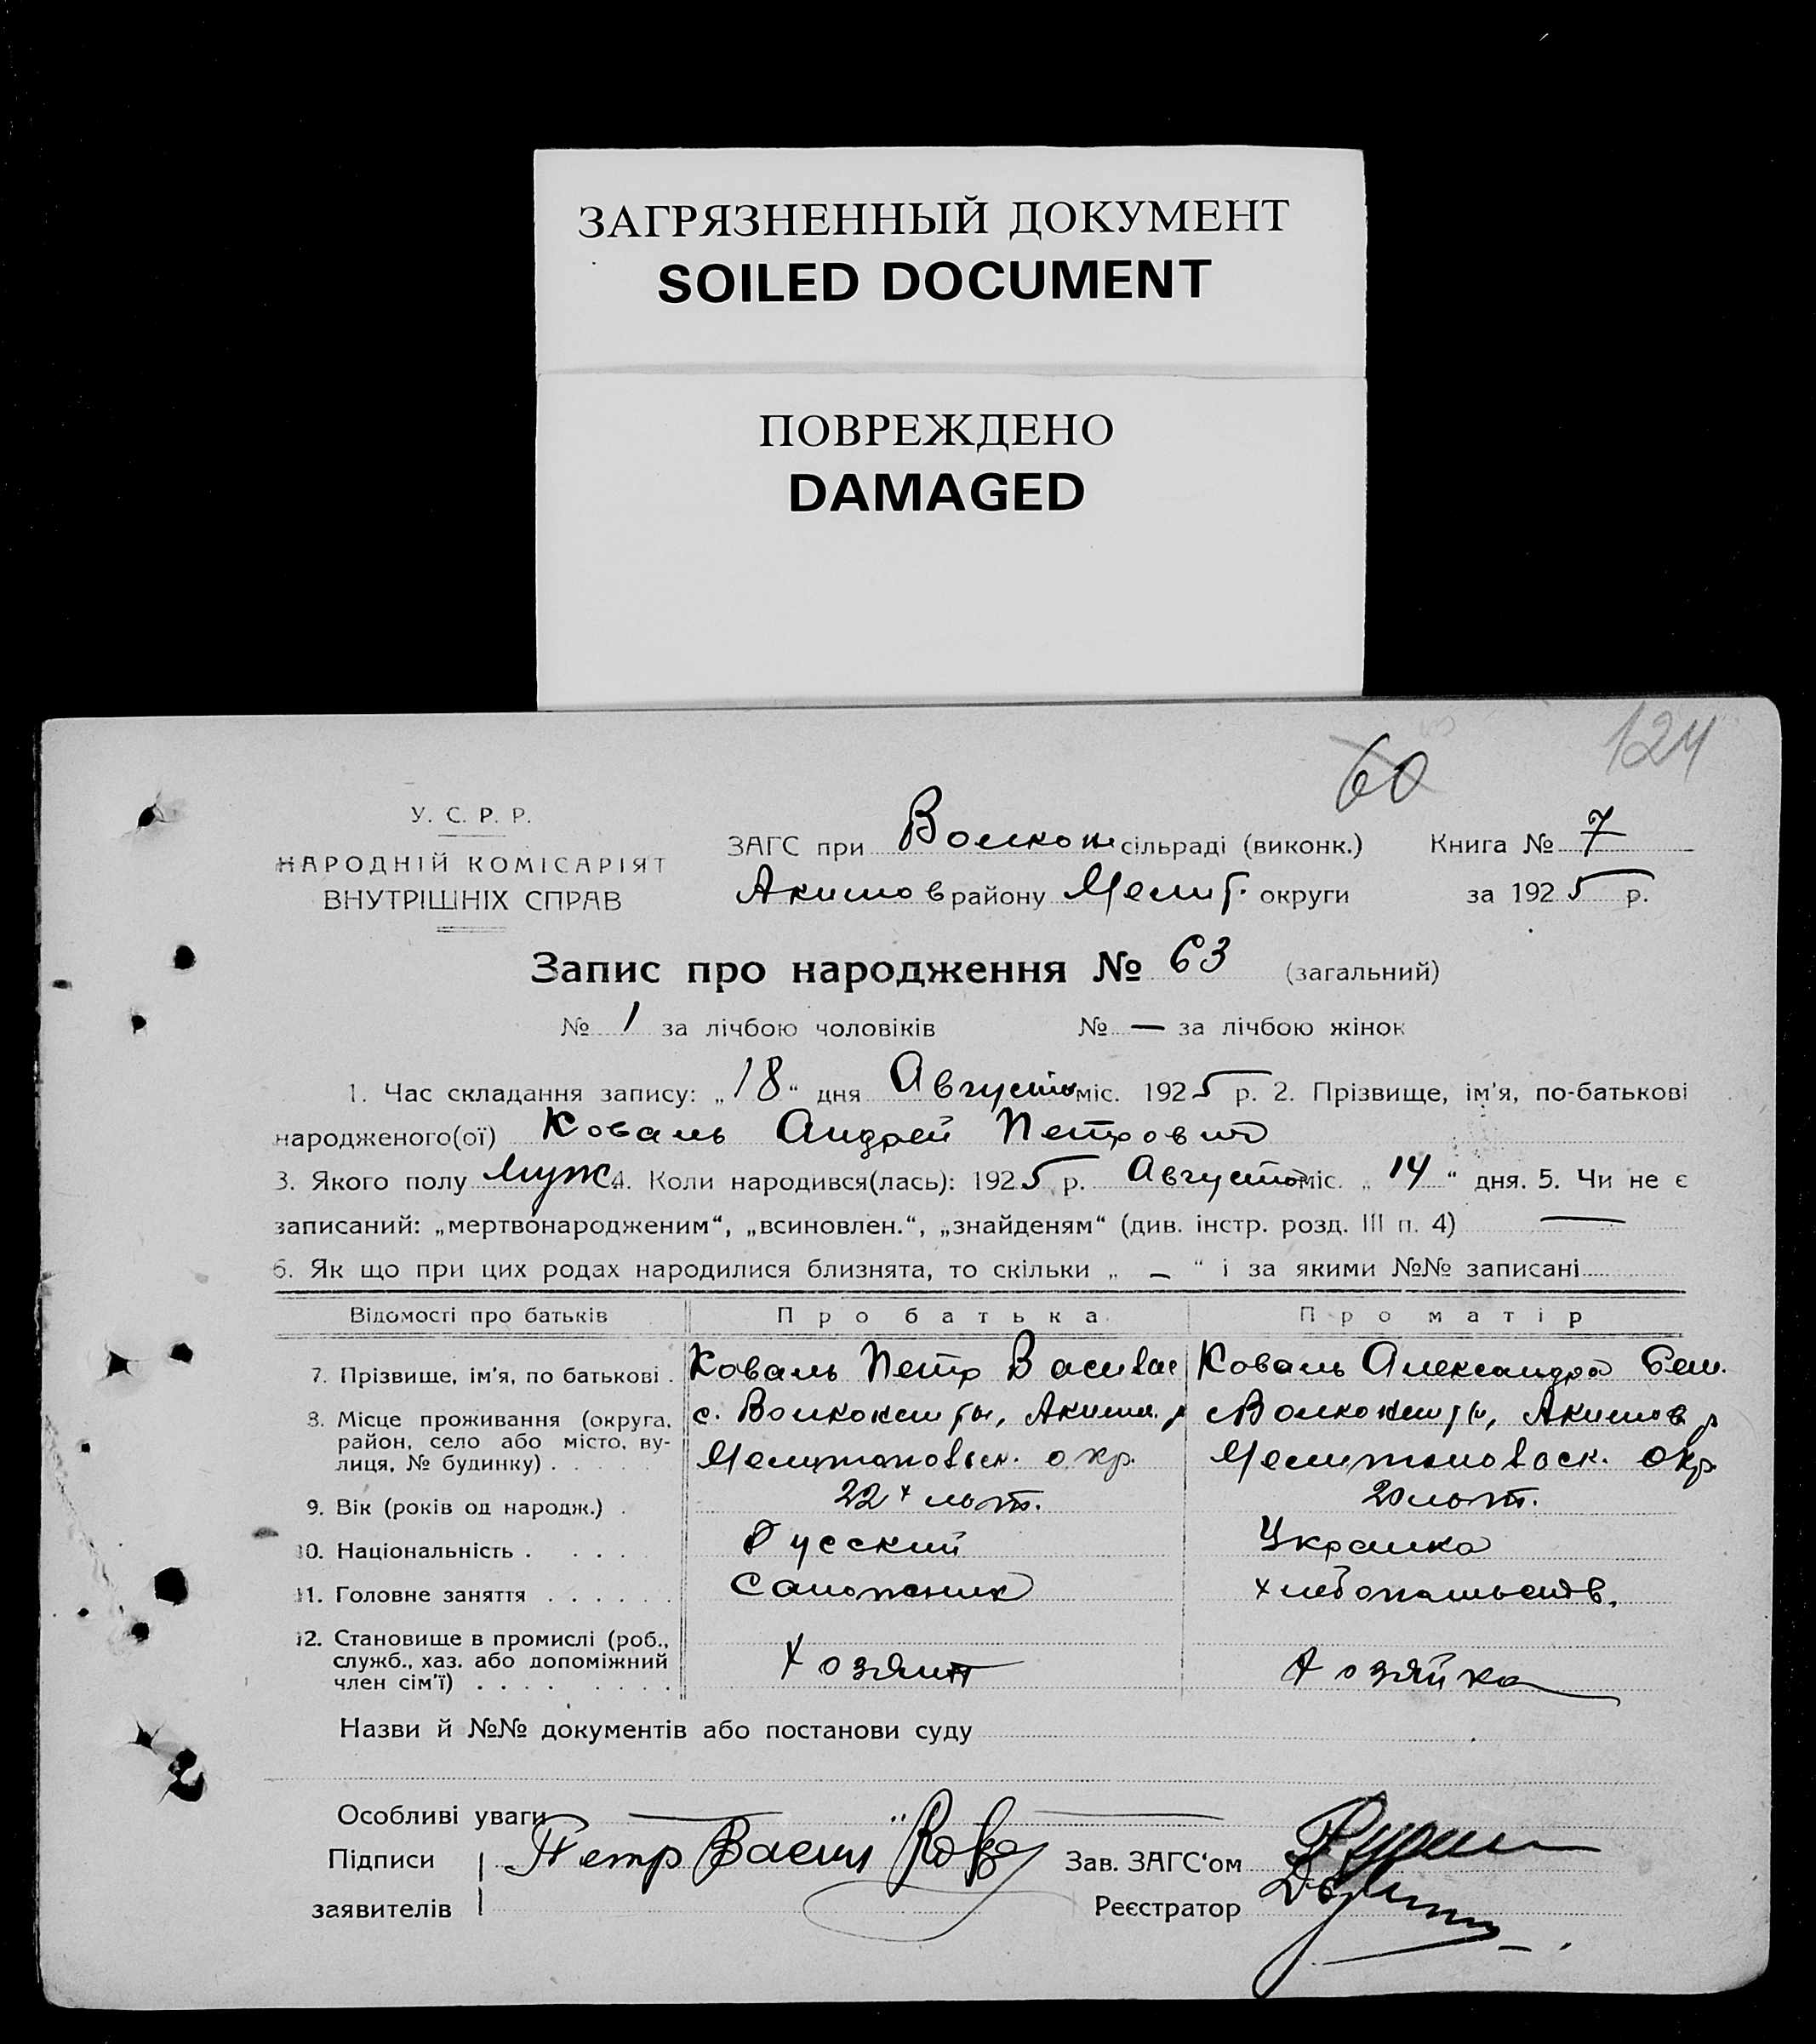 ЗАГРЯЗНЕННЫЙ ДОКУМЕНТ
SOILED DOCUMENT
ПОВРЕЖДЕНО
DAMAGED
124
60
У. С. Р. Р.
НАРОДНІЙ КОМІСАРІЯТ
ВНУТРІШНІХ СПРАВ
ЗАГС при Волкон сільраді (виконк.) Книга № 7
Акимов району Мелит. округи за 1925 р.
Запис про народження № 63 (загальний)
№ 1 за лічбою чоловіків № — за лічбою жінок
1. Час складання запису: „18“ дня Августа міс. 1925 р. 2. Прізвище, ім'я, по-батькові
народженого(ої) Коваль Андрей Петрович
3. Якого полу Муж 4. Коли народився(лась): 1925 р. Августа міс. „14“ дня. 5. Чи не є
записаний: „мертвонародженим“, „всиновлен.“, „знайденям“ (див. інстр. розд. III п. 4) —
6. Як що при цих родах народилися близнята, то скільки „—“ і за якими №№ записані
Відомості про батьків Про батька Про матір
7. Прізвище, ім'я, по батькові . Коваль Петр Васил Коваль Александра
8. Місце проживання (округа, район, село або місто, вулиця, № будинку) . с. Акиш. р Акимов р
окр. окр.
9. Вік (років од народж.) . 22х лет. 20 лет.
10. Національність . . . . Русский Украинка
11. Головне заняття . . . . . . Сапожник хлебопашеств.
12. Становище в промислі (роб., служб., хаз. або допоміжний член сім'ї) . . . . . . . . Хозяин Хозяйка
Назви й №№ документів або постанови суду
Особливі уваги
Підписи Петр Васил Зав. ЗАГС'ом
заявителів Реєстратор